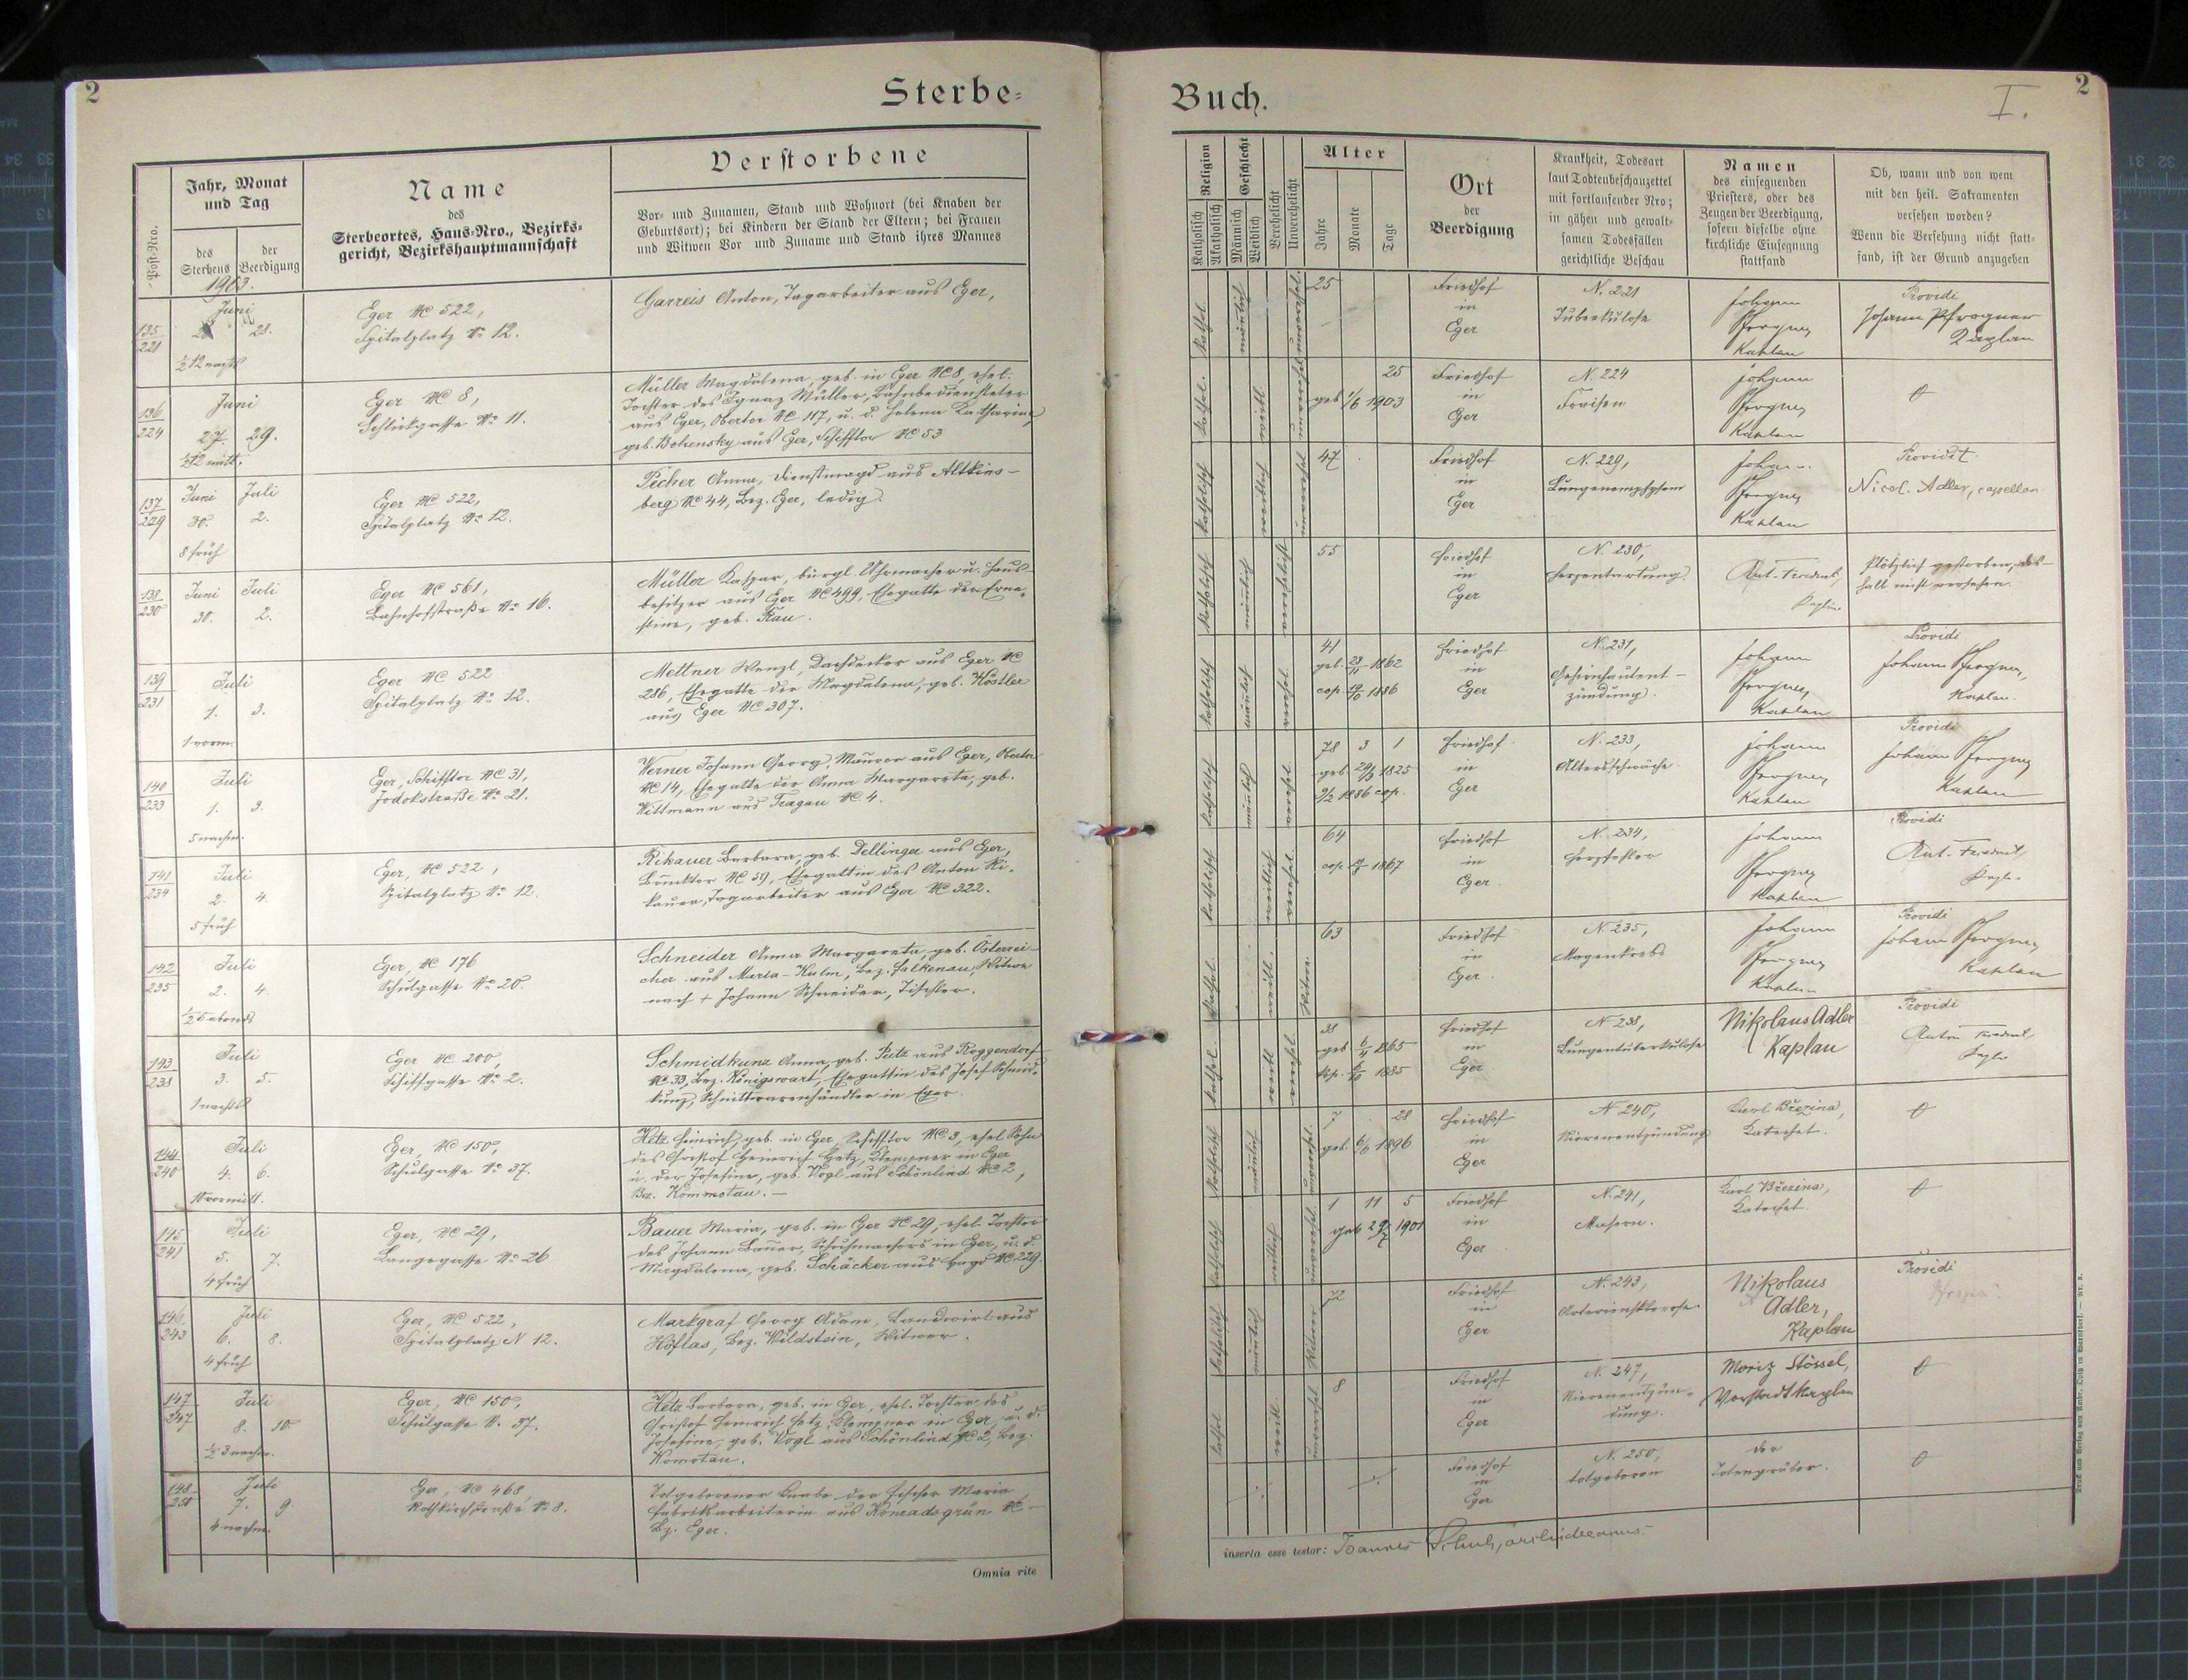 2
Sterbe-
Buch.
2
I.
Post-Nro.
Jahr, Monat
und Tag
des
Sterbens
der
Beerdigung
Name
des
Sterbeortes, Haus-Nro., Bezirks-
gericht, Bezirkshauptmannschaft
Verstorbene
Vor- und Zunamen, Stand und Wohnort (bei Knaben der
Geburtsort); bei Kindern der Stand der Eltern; bei Frauen
und Witwen Vor und Zuname und Stand ihres Mannes
Religion
Katholisch
Akatholisch
Geschlecht
Männlich
Weiblich
Verehelicht
Unverehelicht
Alter
Jahre
Monate
Tage
Ort
der
Beerdigung
Krankheit, Todesart
laut Todtenbeschauzettel
mit fortlaufender Nro;
in gähen und gewalt-
samen Todesfällen
gerichtliche Beschau
Namen
des einsegnenden
Priesters, oder des
Zeugen der Beerdigung,
sofern dieselbe ohne
kirchliche Einsegnung
stattfand
Ob, wann und von wem
mit den heil. Sakramenten
versehen worden?
Wenn die Versehung nicht statt-
fand, ist der Grund anzugeben
1903.
135
221
Juni
28.
½12 nachts
Eger NC 522,
Spitalplatz No 12.
Garreis Anton, Tagarbeiter aus Eger,
kathol.
männlich
unverehel.
25
Friedhof
in
Eger
N. 221
Tuberkulose
Johann
Pfrogner
Kaplan
Providi
Johann Pfrogner
Kaplan
136
224
Juni
27. 29.
½12 mitt.
Eger NC 8,
Schlickgasse No 11.
Müller Magdalena, geb. in Eger NC 8, ehel.
Tochter des Ignaz Müller, Bahnbediensteter
aus Eger, Obertor NC 117, u. d. Helena Katharina,
geb. Bohensky aus Eger, Schifftor NC 53
kathol.
weibl.
unverehel.
25
geb. 1/6 1903
Friedhof
in
Eger
N. 224
Fraisen
Johann
Pfrogner
Kaplan
137
229
Juni Juli
30. 2.
8 früh
Eger NC 522,
Spitalplatz No 12.
Pecher Anna, Dienstmagd aus Altkins-
berg NC 44, Bez. Eger, ledig.
katholisch
weiblich
unverehel.
47
Friedhof
in
Eger
N. 229,
Lungenemphysem
Johann
Pfrogner
Kaplan
Providit
Nicol. Adler, capellan
138
230
Juni Juli
30. 2.
Eger NC 561,
Bahnhofstraße No 16.
Müller Kaspar, bürgl. Uhrmacher u. Haus-
besitzer aus Eger NC 499, Ehegatte der Erne-
stine, geb. Rau.
katholisch
männlich
verehelicht
55
Friedhof
in
Eger
N. 230,
Herzentartung.
Kaplan
Plötzlich gestorben, des-
halb nicht versehen.
139
231
Juli
1. 3.
1 vorm.
Eger NC 522
Spitalplatz No 12.
Mettner Wenzl, Dachdecker aus Eger NC
286, Ehegatte der Magdalena, geb. Köstler
aus Eger NC 307.
katholisch
männlich
verehel.
41
geb. 28/11 1862
cop. 1886
Friedhof
in
Eger
N. 231,
Gehirnhautent-
zündung.
Johann
Pfrogner
Kaplan
Providi
Johann Pfrogner,
Kaplan.
140
233
Juli
1. 3.
5 nachm.
Eger, Schifftor NC 31,
Jodokstraße No 21.
Werner Johann Georg, Maurer aus Eger, Obertor
NC 14, Ehegatte der Anna Margareta, geb.
Wittmann aus Tragau NC 4.
katholisch
männlich
verehel.
78 3 1
geb. 29/3 1825
9/2 1886 cop.
Friedhof
in
Eger
N. 233,
Altersschwäche
Johann
Pfrogner
Kaplan
Providi
Johann Pfrogner
Kaplan
141
234
Juli
2. 4.
5 früh
Eger, NC 522,
Spitalplatz No 12.
Rikauer Barbara, geb. Dellinger aus Eger,
NC 59, Ehegattin des Anton Ri-
kauer, Tagarbeiter aus Eger NC 322.
katholisch
weiblich
verehel.
64
cop. 1867
Friedhof
in
Eger.
N. 234,
Herzfehler
Johann
Pfrogner
Kaplan
Providi
142
235
Juli
2. 4.
½5 abends
Eger, NC 176
Schulgasse No 20.
Schneider Anna Margareta, geb. Österrei-
cher aus Maria-Kulm, Bez. Falkenau, Witwe
nach + Johann Schneider, Tischler.
kathol.
weibl.
Witwe
63
Friedhof
in
Eger.
N. 235,
Magenkrebs
Johann
Pfrogner
Kaplan
Providi
Johann Pfrogner
Kaplan
143
238
Juli
3. 5.
1 nachts
Eger NC 200,
Schiffgasse No 2.
Schmidkunz Anna, geb. Putz aus Roggendorf
NC 33, Bez. Königswart, Ehegattin des Josef Schmid-
kunz, Schnittwarenhändler in Eger.
kathol.
weibl.
verehel.
38
geb. 1865
Kop. 1885
Friedhof
in
Eger.
N. 238,
Lungentuberkulose
Nikolaus Adler
Kaplan
Providi
144
240
Juli
4. 6.
10 vormitt.
Eger, NC 150,
Schulgasse No 37.
Hetz Heinrich, geb. in Eger, Schifftor NC 3, ehel. Sohn
des Christof Heinrich Hetz, Klempner in Eger
u. der Josefine, geb. Vogl aus Schönlind NC 2,
Bez. Kommotau. —
katholisch
männlich
unverehel.
7 28
geb. 6/6 1896
Friedhof
in
Eger
N 240,
Nierenentzündung
Karl Březina,
Katechet.
145
241
Juli
5. 7.
4 früh
Eger, NC 29,
Langegasse No 26
Bauer Maria, geb. in Eger NC 29, ehel. Tochter
des Johann Bauer, Schuhmachers in Eger, u. d.
Magdalena, geb. Schäcker aus NC 229.
katholisch
weiblich
unverehel.
1 11 5
geb. 1901
Friedhof
in
Eger
N. 241,
Masern.
Karl Březina,
Katechet.
146.
243
Juli
6. 8.
4 früh
Eger, NC 522,
Spitalplatz N 12.
Markgraf Georg Adam, Landwirt aus
Höflas, Bez. Wildstein, Witwer.
katholisch
männlich
Witwer
72
Friedhof
in
Eger
N. 243,
Arteriensklerose.
Nikolaus
Adler,
Kaplan
Providi
147
247
Juli
8. 10.
½3 nachm.
Eger, NC 150,
Schulgasse N. 37.
Hetz Barbara, geb. in Eger, ehel. Tochter des
Christof Heinrich Hetz, Klempner in Eger, u. d.
Josefine, geb. Vogl aus Schönlind NC 2, Bez.
Komotau.
kathol
weibl.
unverehel.
8
Friedhof
in
Eger
N. 247,
Nierenentzün-
dung.
Moriz Stössel,
Vorstadtkaplan
148
250
Juli
7. 9
4 nachm.
Eger, NC 468,
No 8.
Totgeborener Knabe der Fischer Maria
Fabriksarbeiterin aus Konradsgrün NC —
Bz. Eger.
Friedhof
in
Eger
N. 250,
totgeboren
der
Totengräber.
Omnia rite
inserta esse testor: Joannes archidecanus.